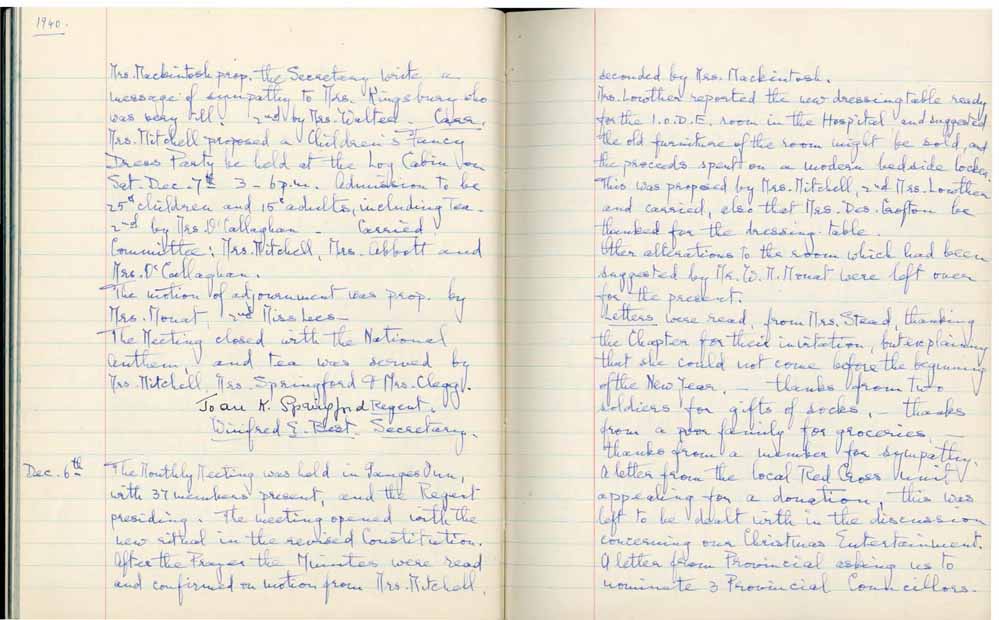 1940.
Mrs. Mackintosh prop. the Secretary write a
message of sympathy to Mrs. Kingsbury who
was very ill. 2nd by Mrs. Walter - Carr.
Mrs. Mitchell proposed a Children's Fancy
Dress Party be held at the Log Cabin on
Sat. Dec. 7th 3 - 6 p.m. Admission to be
25¢ children and 15¢ adults, including Tea -
2nd by Mrs. O'Callaghan - Carried
Committee: Mrs. Mitchell, Mrs. Abbott and
Mrs. O'Callaghan.
The motion of adjournment was prop. by
Mrs. Mouat, 2nd Miss Lees -
The Meeting closed with the National
Anthem, and tea was served by
Mrs. Mitchell, Mrs. Springford & Mrs. Clegg.
Joan K. Springford Regent.
Winifred E. Best. Secretary.
Dec. 6th The Monthly Meeting was held in Ganges Inn,
with 37 members present, and the Regent
presiding. The meeting opened with the
new ritual in the revised Constitution.
After the Prayer the Minutes were read
and confirmed on motion from Mrs. Mitchell,
seconded by Mrs. Mackintosh.
Mrs. Lowther reported the new dressing table ready
for the I.O.D.E. room in the Hospital and suggested
the old furniture of the room might be sold, and
the proceeds spent on a modern bedside locker.
This was proposed by Mrs. Mitchell, 2nd Mrs. Lowther
and carried, also that Mrs. Des. Crofton be
thanked for the dressing-table.
Other alterations to the room which had been
suggested by Mr. W. M. Mouat were left over
for the present.
Letters were read, from Mrs. Stead, thanking
the Chapter for their invitation, but explaining
that she could not come before the beginning
of the New Year, - thanks from two
soldiers for gifts of socks, - thanks
from a poor family for groceries, -
thanks from a member for sympathy.
A letter from the local Red Cross Unit
appealing for a donation, this was
left to be dealt with in the discussion
concerning our Christmas Entertainment.
A letter from Provincial asking us to
nominate 3 Provincial Councillors.